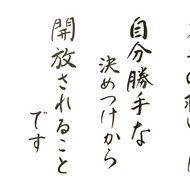 自分勝手な
決めつけから
開放されること
です